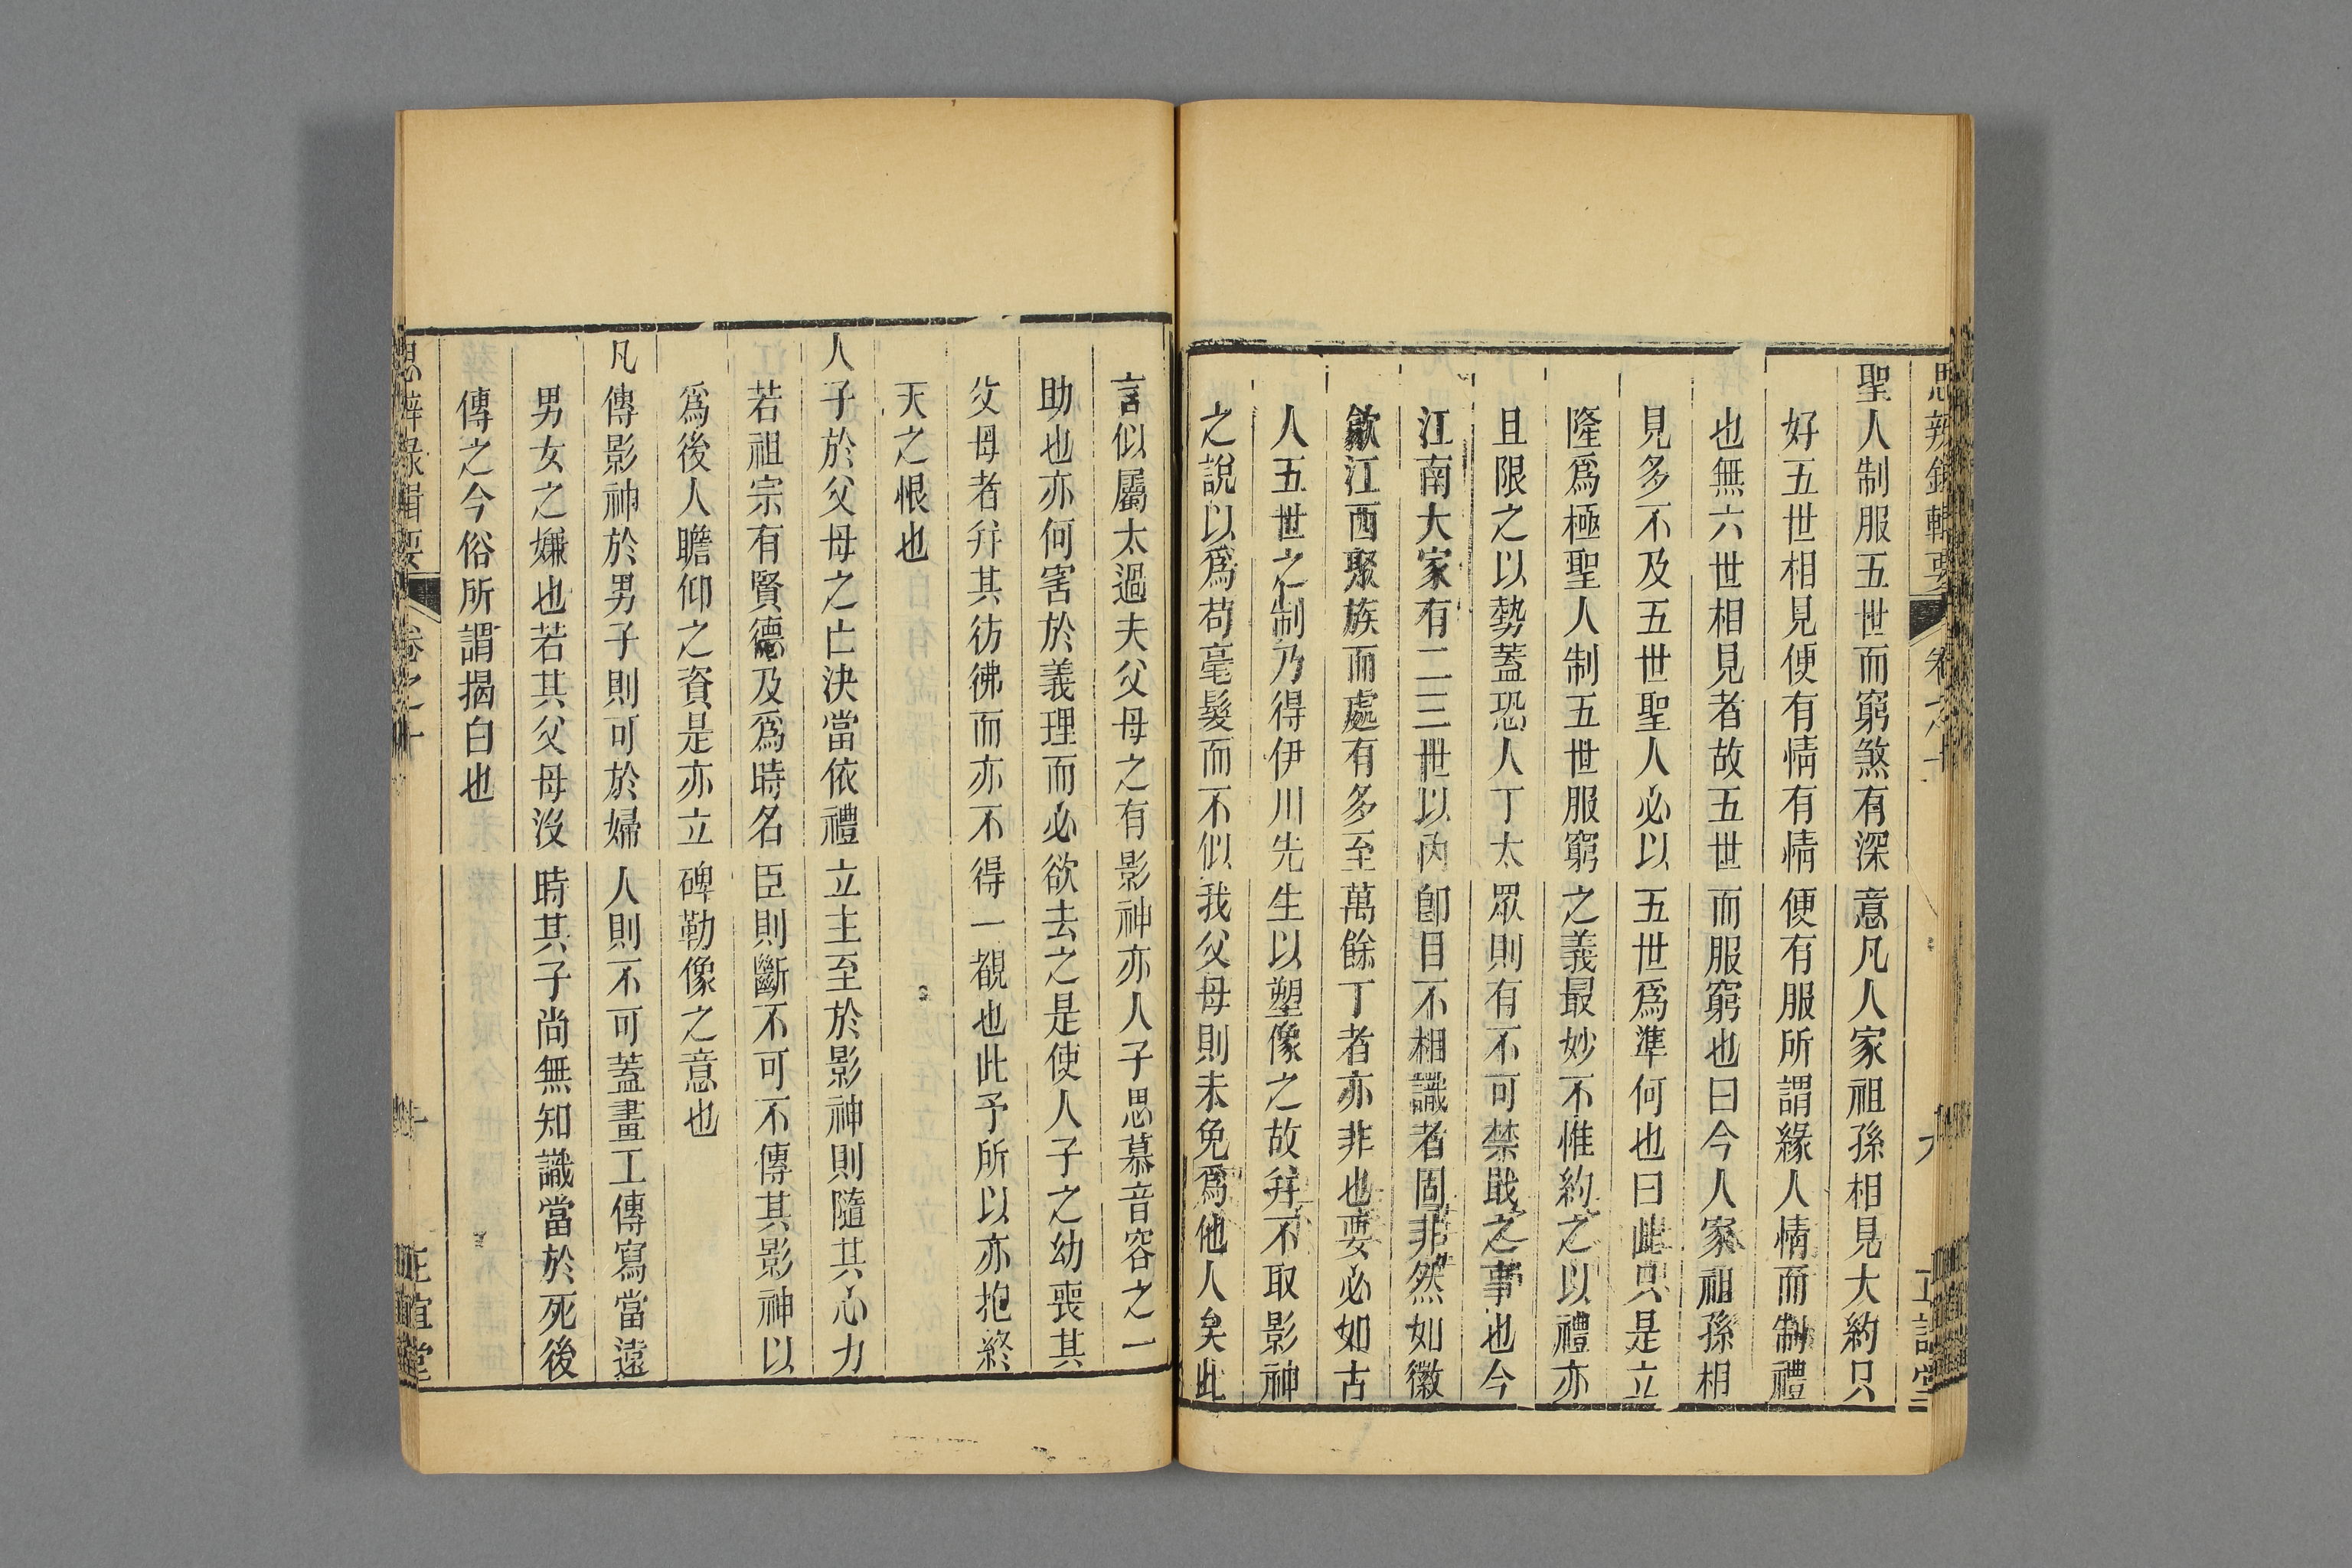 聖人制服五世而窮煞有深意凡人家祖孫相見大約只
好五世相見便有情有情便有服所謂緣人情而制禮
也無六世相見者故五世而服窮也曰今人家祖孫相
見多不及五世聖人必以五世爲準何也曰此只是立
隆爲極聖人制五世服窮之義最妙不惟約之以禮亦
且限之以勢蓋恐人丁太眾則有不可禁戢之事也今
江南大家有二三世以内卽目不相識者固非然如徽
歙江西聚族而處有多至萬餘丁者亦非也要必如古
人五世之制乃得伊川先生以塑像之故并不取影神
之說以爲苟毫髮而不似我父母則未免爲他人矣此
言似屬太過夫父母之有影神亦人子思慕音容之一
助也亦何害於義理而必欲去之是使人子之幼喪其
父母者并其彷彿而亦不得一覩也此予所以亦抱終
天之恨也
人子於父母之亡決當依禮立主至於影神則隨其心力
若祖宗有賢德及爲時名臣則斷不可不傳其影神以
爲後人瞻仰之資是亦立碑勒像之意也
凡傳影神於男子則可於婦人則不可蓋畫工傳寫當遠
男女之嫌也若其父母沒時其子尚無知識當於死後
傳之今俗所謂揭白也
思辨錄輯要 卷之十 正誼堂